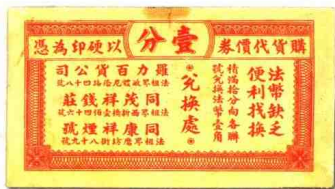 購貨代價券
壹分
以硬印為憑
法幣缺乏
便利找換
積滿拾分向各聯
號兌換法幣壹角
兌換處
羅力百貨公司
同茂祥錢莊
同康祥煙號